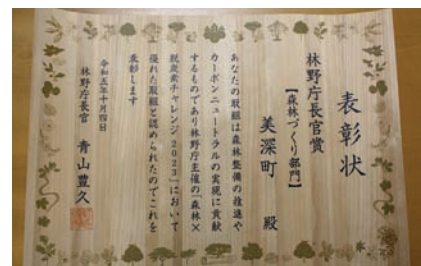 表彰状
林野庁長官賞
【森林づくり部門】
美深町 殿
あなたの取組は森林整備の推進や
カーボンニュートラルの実現に貢献
するものであり林野庁主催の「森林×
脱炭素チャレンジ2023」において
優れた取組と認められたのでこれを
表彰します
令和五年十月四日
林野庁長官 青山豊久